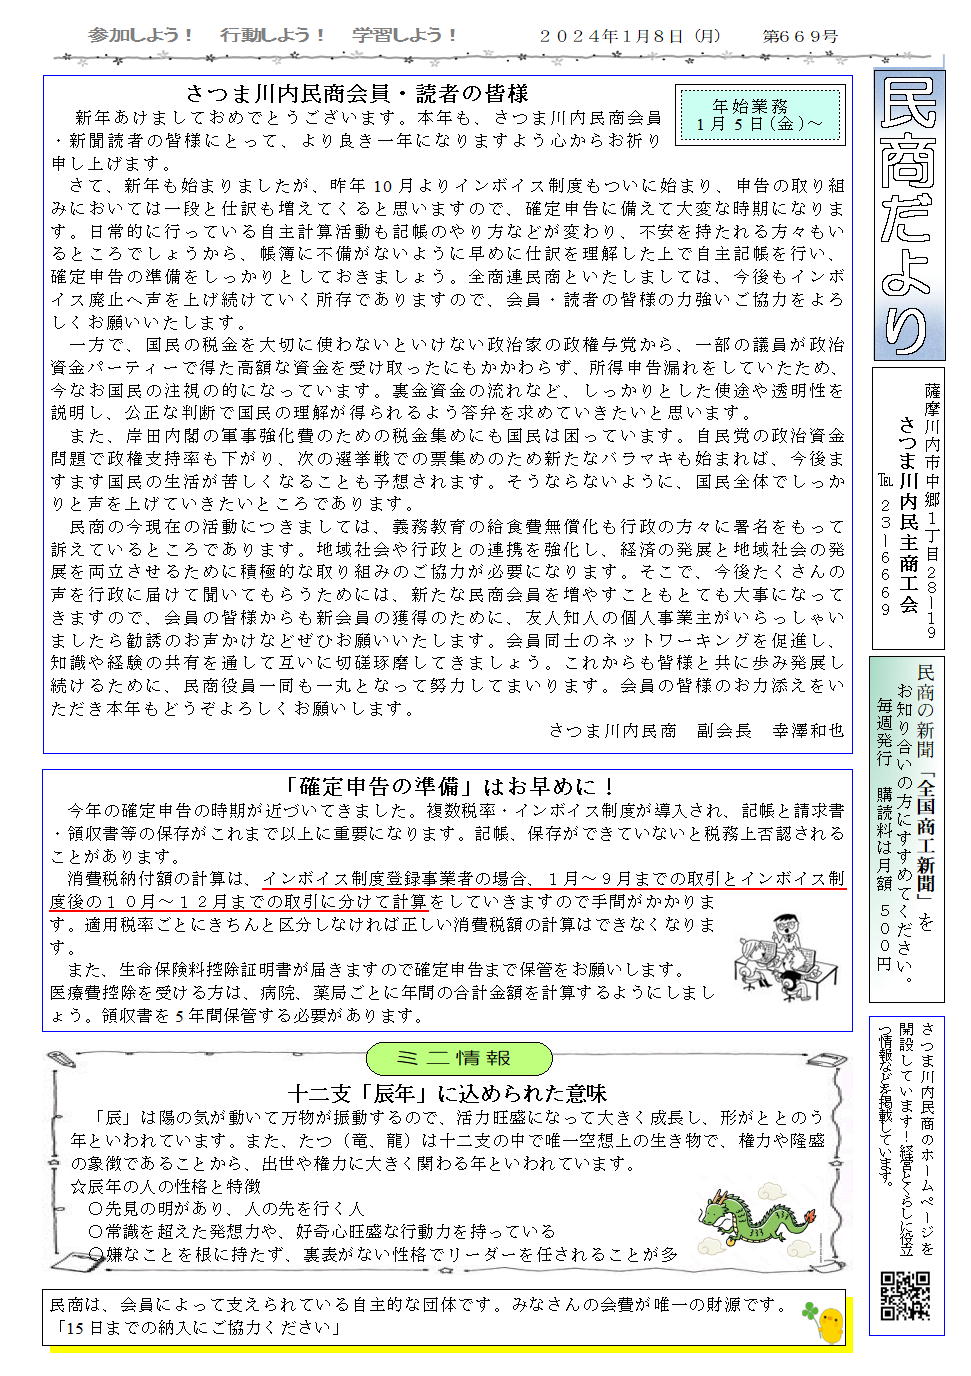 参加しよう！　行動しよう！　学習しよう！　２０２４年１月８日（月）　第６６９号
民商だより
薩摩川内市中郷１丁目２８ー１９
さつま川内民主商工会
℡ ２３ー６６６９
民商の新聞「全国商工新聞」を
お知り合いの方にすすめてください。
毎週発行　購読料は月額 ５００円
さつま川内民商のホームページを
開設しています！経営とくらしに役立
つ情報などを掲載しています。
さつま川内民商会員・読者の皆様
年始業務
１月５日（金）～
新年あけましておめでとうございます。本年も、さつま川内民商会員
・新聞読者の皆様にとって、より良き一年になりますよう心からお祈り
申し上げます。
さて、新年も始まりましたが、昨年 10 月よりインボイス制度もついに始まり、申告の取り組
みにおいては一段と仕訳も増えてくると思いますので、確定申告に備えて大変な時期になりま
す。日常的に行っている自主計算活動も記帳のやり方などが変わり、不安を持たれる方々もい
るところでしょうから、帳簿に不備がないように早めに仕訳を理解した上で自主記帳を行い、
確定申告の準備をしっかりとしておきましょう。全商連民商といたしましては、今後もインボ
イス廃止へ声を上げ続けていく所存でありますので、会員・読者の皆様の力強いご協力をよろ
しくお願いいたします。
一方で、国民の税金を大切に使わないといけない政治家の政権与党から、一部の議員が政治
資金パーティーで得た高額な資金を受け取ったにもかかわらず、所得申告漏れをしていたため、
今なお国民の注視の的になっています。裏金資金の流れなど、しっかりとした使途や透明性を
説明し、公正な判断で国民の理解が得られるよう答弁を求めていきたいと思います。
また、岸田内閣の軍事強化費のための税金集めにも国民は困っています。自民党の政治資金
問題で政権支持率も下がり、次の選挙戦での票集めのため新たなバラマキも始まれば、今後ま
すます国民の生活が苦しくなることも予想されます。そうならないように、国民全体でしっか
りと声を上げていきたいところであります。
民商の今現在の活動につきましては、義務教育の給食費無償化も行政の方々に署名をもって
訴えているところであります。地域社会や行政との連携を強化し、経済の発展と地域社会の発
展を両立させるために積極的な取り組みのご協力が必要になります。そこで、今後たくさんの
声を行政に届けて聞いてもらうためには、新たな民商会員を増やすこともとても大事になって
きますので、会員の皆様からも新会員の獲得のために、友人知人の個人事業主がいらっしゃい
ましたら勧誘のお声かけなどぜひお願いいたします。会員同士のネットワーキングを促進し、
知識や経験の共有を通して互いに切磋琢磨してきましょう。これからも皆様と共に歩み発展し
続けるために、民商役員一同も一丸となって努力してまいります。会員の皆様のお力添えをい
ただき本年もどうぞよろしくお願いします。
さつま川内民商　副会長　幸澤和也
「確定申告の準備」はお早めに！
今年の確定申告の時期が近づいてきました。複数税率・インボイス制度が導入され、記帳と請求書
・領収書等の保存がこれまで以上に重要になります。記帳、保存ができていないと税務上否認される
ことがあります。
消費税納付額の計算は、インボイス制度登録事業者の場合、１月～９月までの取引とインボイス制
度後の１０月～１２月までの取引に分けて計算をしていきますので手間がかかりま
す。適用税率ごとにきちんと区分しなければ正しい消費税額の計算はできなくなりま
す。
また、生命保険料控除証明書が届きますので確定申告まで保管をお願いします。
医療費控除を受ける方は、病院、薬局ごとに年間の合計金額を計算するようにしまし
ょう。領収書を 5 年間保管する必要があります。
ミニ情報
十二支「辰年」に込められた意味
「辰」は陽の気が動いて万物が振動するので、活力旺盛になって大きく成長し、形がととのう
年といわれています。また、たつ（竜、龍）は十二支の中で唯一空想上の生き物で、権力や隆盛
の象徴であることから、出世や権力に大きく関わる年といわれています。
☆辰年の人の性格と特徴
○先見の明があり、人の先を行く人
○常識を超えた発想力や、好奇心旺盛な行動力を持っている
○嫌なことを根に持たず、裏表がない性格でリーダーを任されることが多
民商は、会員によって支えられている自主的な団体です。みなさんの会費が唯一の財源です。
「15 日までの納入にご協力ください」